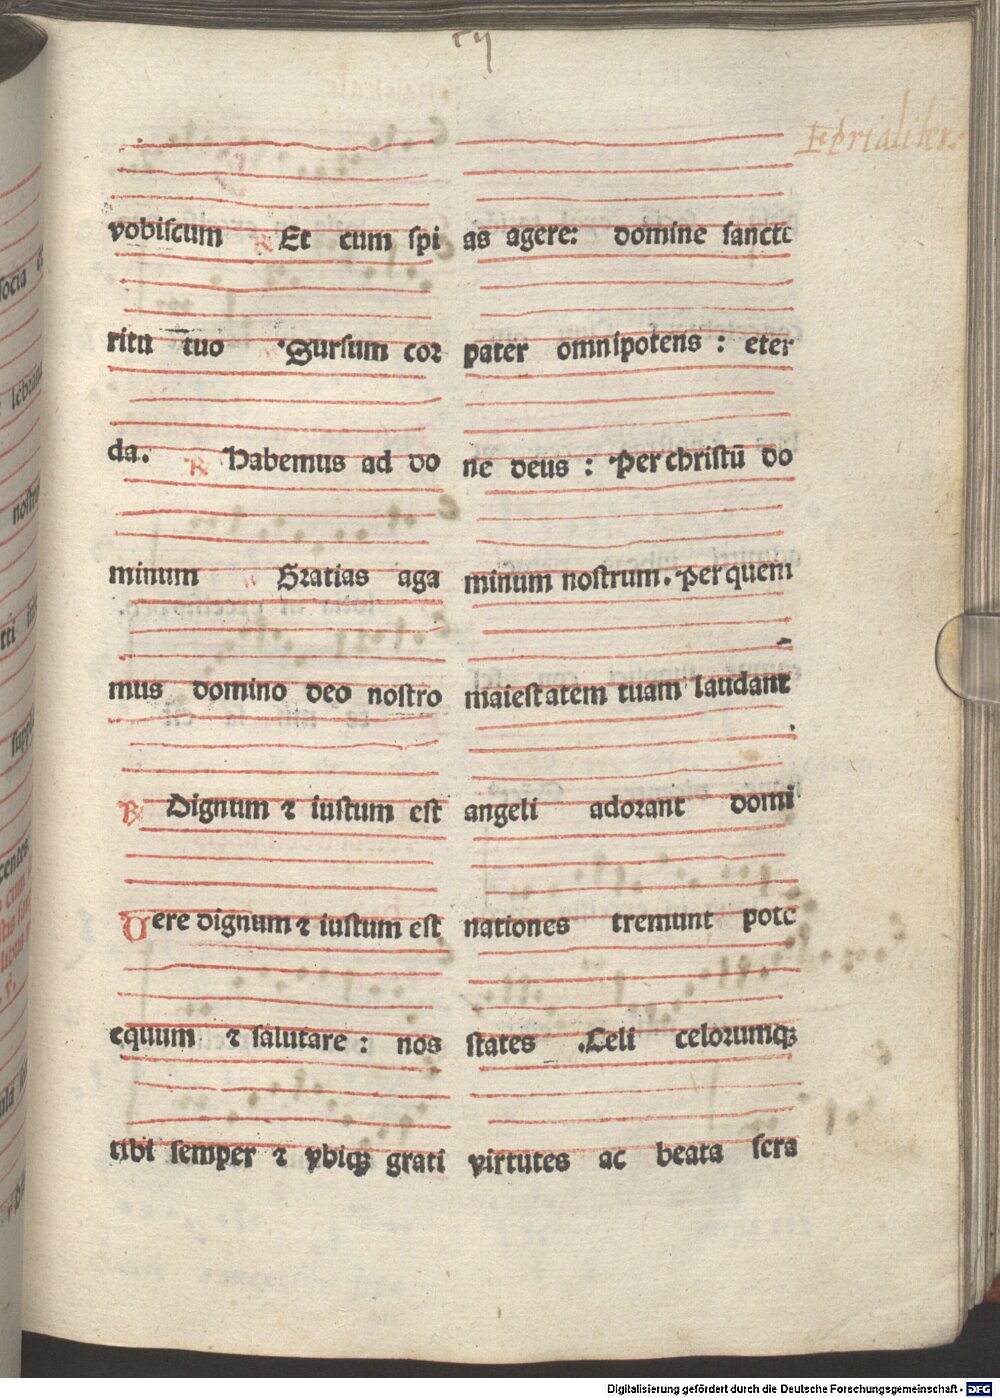 Ferialiter:
vobiscum ℟ Et cum spi
ritu tuo Sursum coꝛ
da. ℟ Habemus ad do
minum Gratias aga
mus domino deo nostro
℟ Dignum ⁊ iustum est
Uere dignum ⁊ iustum est
equum ⁊ salutare: nos
tibi semper ⁊ vbiqꝫ grati
as agere: domine sancte
pater omnipotens: eter
ne deus: Per christū do
minum nostrum. Per quem
maiestatem tuam laudant
angeli adoꝛant domi
nationes tremunt pote
states .Celi celoꝛumqꝫ
virtutes ac beata sera
Digitalisierung gefördert durch die Deutsche Forschungsgemeinschaft - DFG